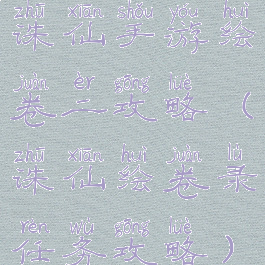 zhū xiān shǒu yóu huì
诛仙手游绘
juàn èr gōng lüè
卷二攻略（
zhū xiān huì juàn lù
诛仙绘卷录
rèn wù gōng lüè
任务攻略）